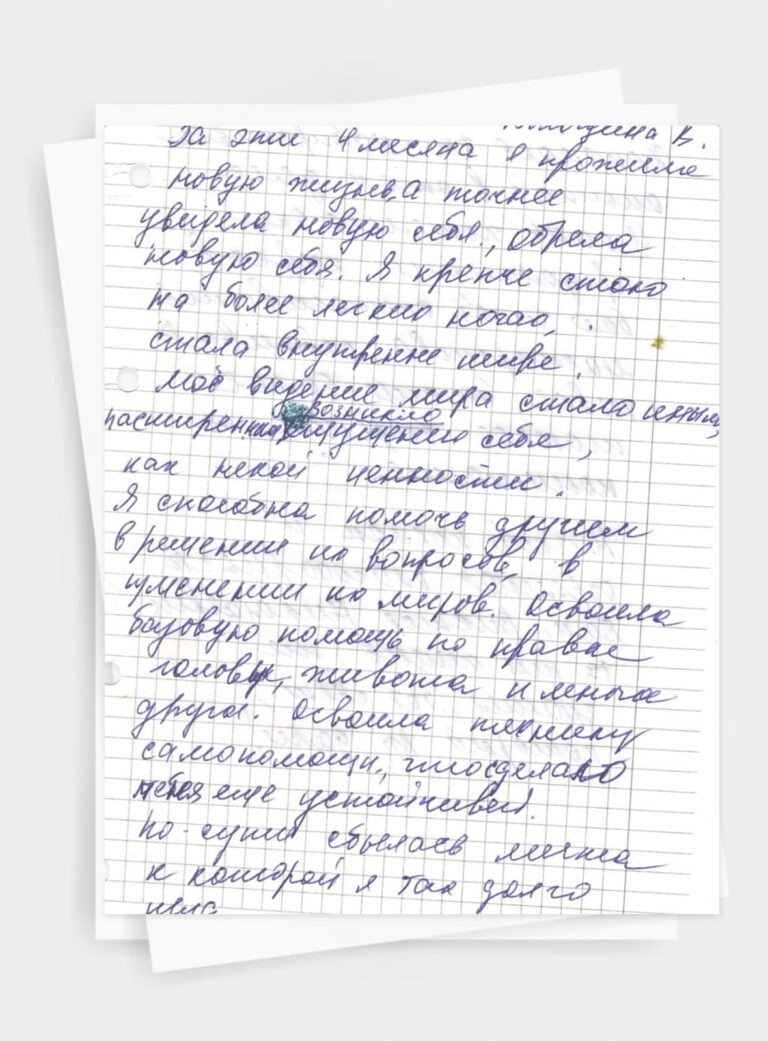 В.
За эти 4 месяца я прожила
новую жизнь, а точнее
увидела новую себя, обрела
новую себя. Я крепче стою
на более легких ногах,
стала внутренне шире.
Моё видение мира стало иным,
расширенным возникло
ощущение себя,
как некой ценности.
Я способна помочь другим
в решении их вопросов, в
их миров. Освоила
базовую помощь по правке
головы, живота и много
друга. Освоила технику
самопомощи, что сделало
меня еще устойчивей.
По-сути сбылась мечта
к которой я так долго
шла